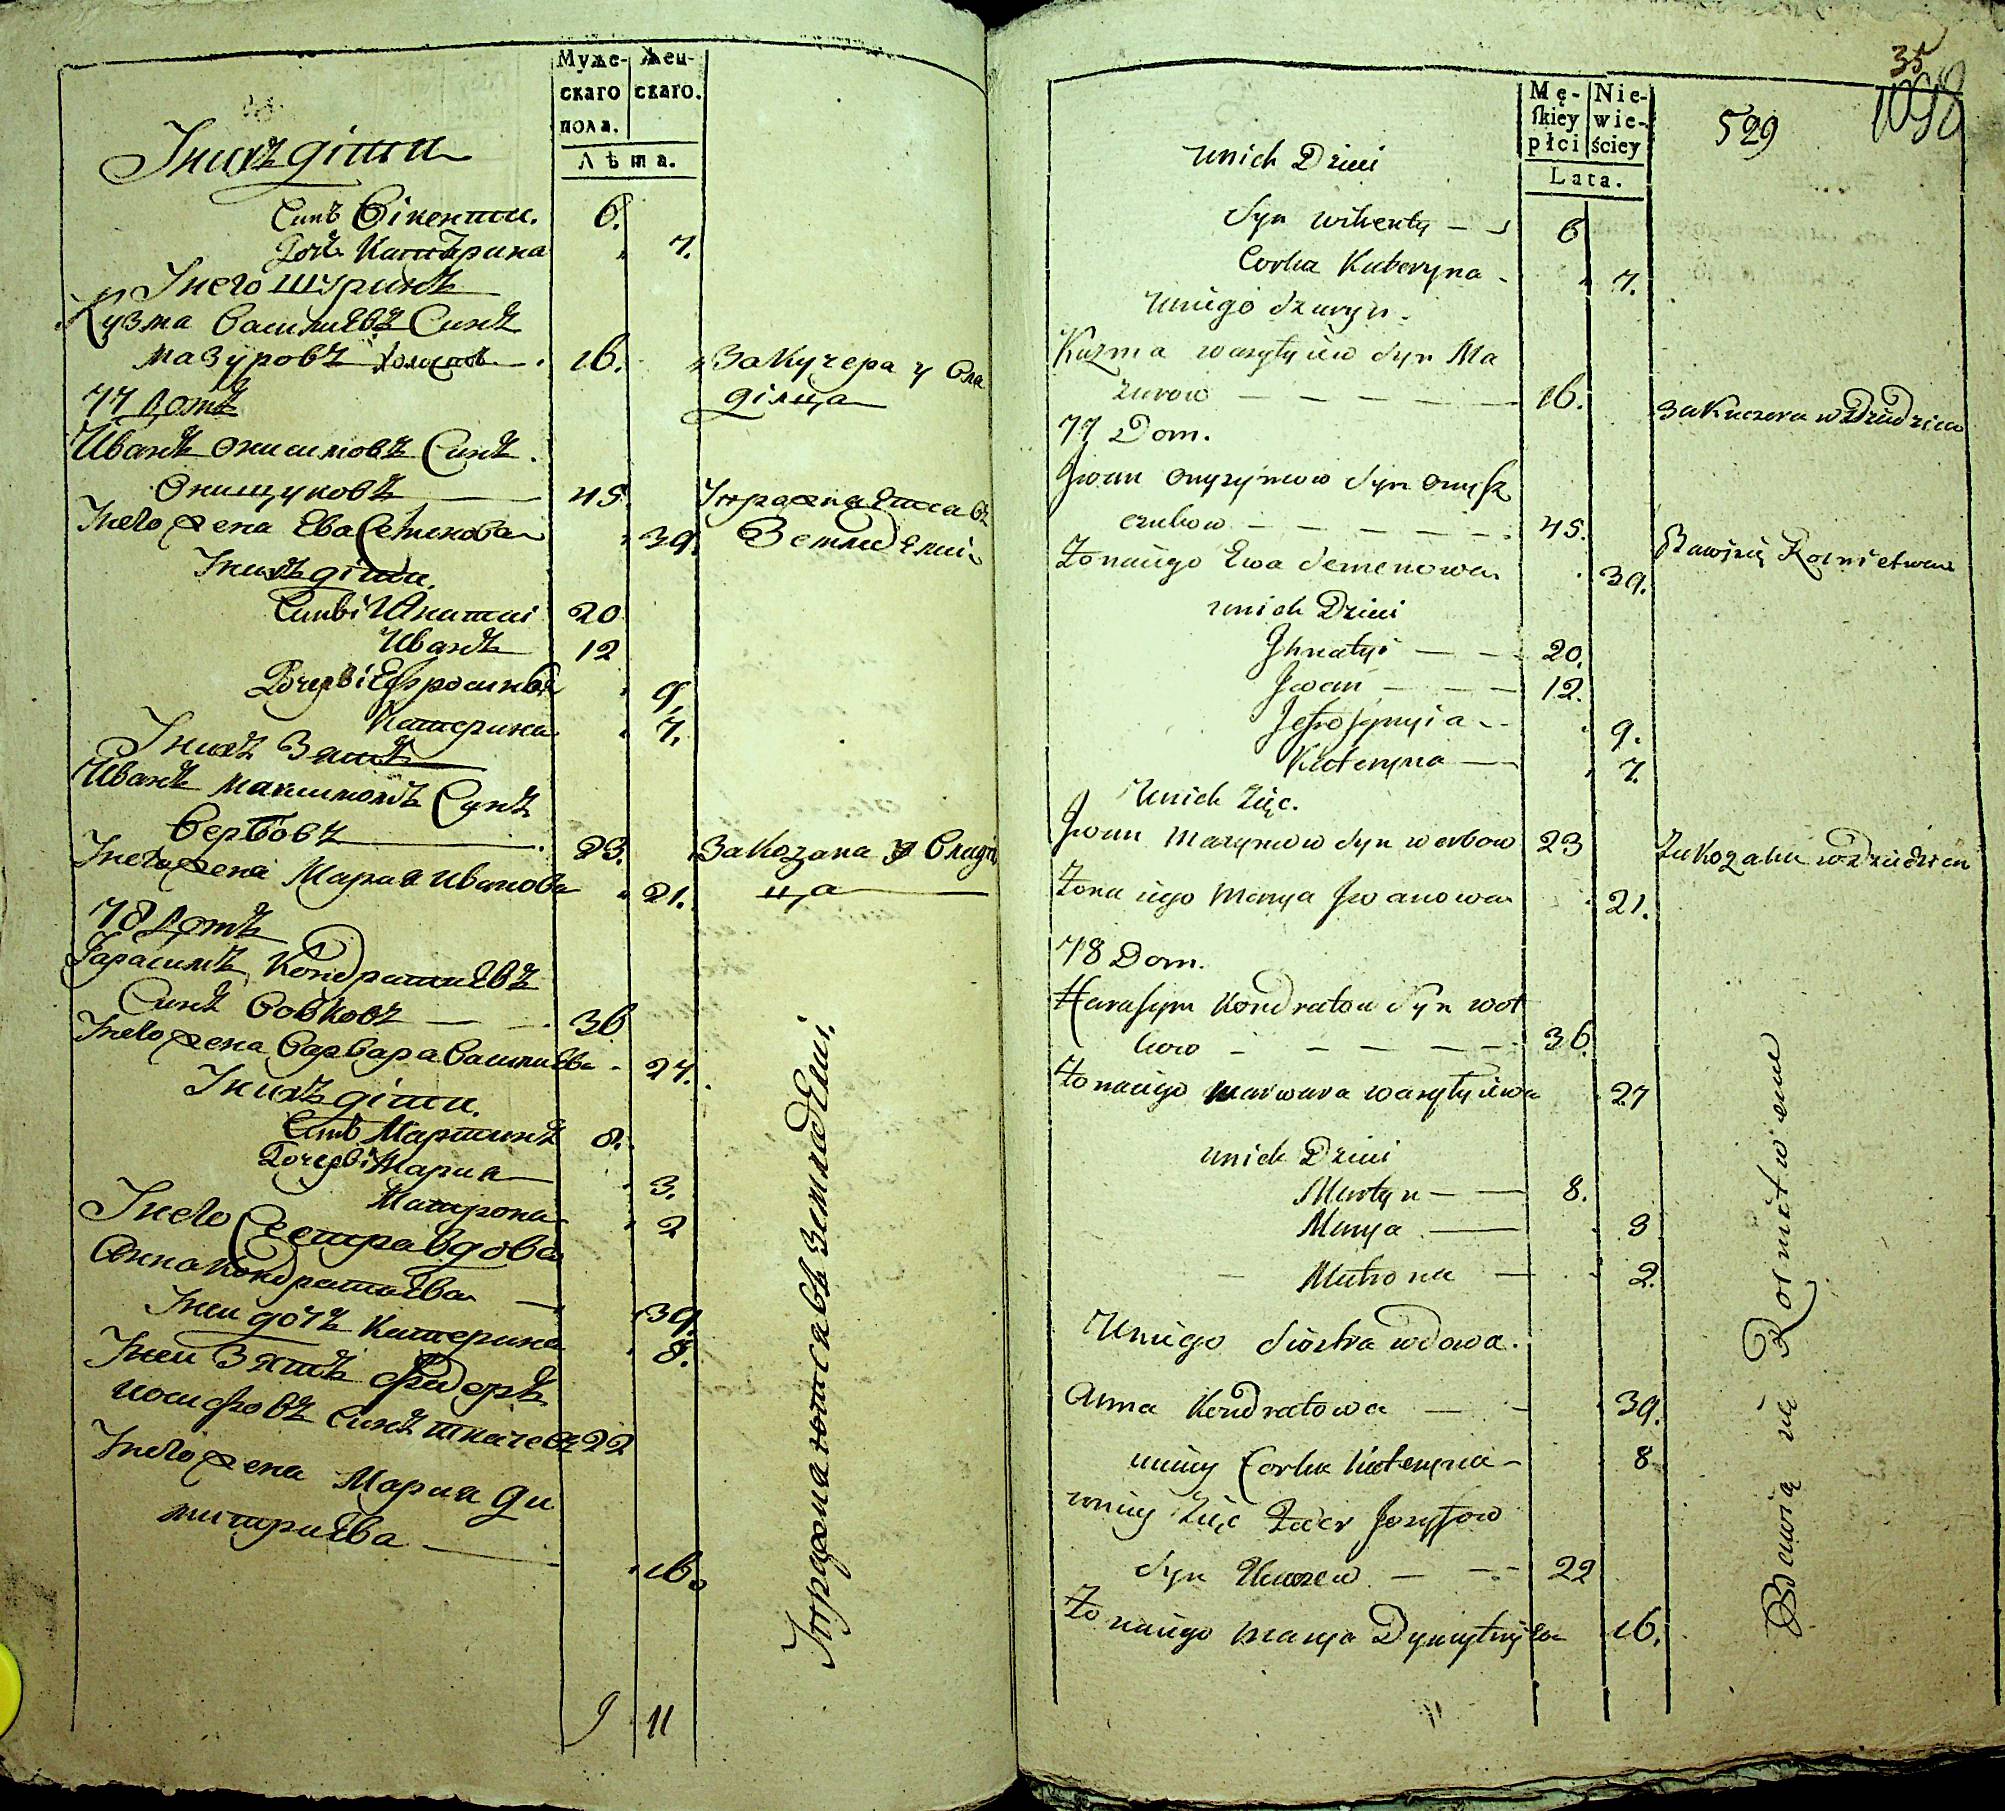 Муже-
скаго
пола.
Жен-
скаго.
Лѣта.
Унихъ діти
Синъ Вікенти. 6.
Дочъ Катерина 7.
Унего шуринъ
Кузма Василиевъ Синъ
Мазуровъ холостъ 16. За кучера у вла
діліца
77 Домъ
Иванъ Онисимовъ Синъ
Онищуковъ 45. Упражнаетса въ
Земледѣлиі
Унего жена Ева Семенова 39.
Унихъ діти.
Синві Игнатиі 20
Иванъ 12
Дочерві Ефросиниа 9.
Катерина 7.
Унихъ Зять
Иванъ Максимовъ Синъ
Вербовъ 23. За козака у владѣ
ца
Унего жена Мариа Иванова 21.
78 Домъ
Гарасимъ Кондратиевъ
Синъ Вовковъ 36
Унего жена Варвара Василиева 27.
Унихъ діти.
Синъ Мартинъ 8.
Дочерві Мариа 3.
Матрона 2
Унего Сестра вдова
Анна Кондратиева 39.
Унеи дочъ Катерина 8.
Унеи Зять Фидоръ
Иосифовъ Синъ Ткачевъ 22
Унего жена Мариа Ди
митриева 16.
Упражнаютса въ Земледѣлиі.
9 11
Mę-
ſkiey
płci
Nie-
wie-
ściey
Lata.
35
529
1098
unich Dzieci
Syn Wikenty 6
Corka Kateryna 7.
Uniego Szuryn.
Kuzma Wasylyiew Syn Ma
zurow 16. za Kuczera w Dziedzica
77 Dom.
Jwan Onysymow Syn Onyſz
czukow 45.
Bawisię Rolnictwem
Zona iego Ewa Semenowa 39.
unich Dzieci
Jhnatyi 20.
Jwan 12.
Jefroſynyia 9.
Kateryna 7.
Unich Zięc.
Jwan Maxymow Syn Werbow 23 Za Kozaka w Dziedzica
Zona iego Marya Jwanowa 21.
78 Dom.
Haraſym Kondratow Syn Wol
kow 36.
Zona iego Warwara Wasylyiewa 27
unich Dzieci
Martyn 8.
Marya 3
Matrona 2.
Uniego Siostra wdowa.
Anna Kondratowa 39.
uniey Corka Kateryna 8
uniey Zięc Fedor Jozyfow
Syn Tkaczew 22
Zona iego Marya Dymytryiewa 16.
Bawią się Rolnictwem